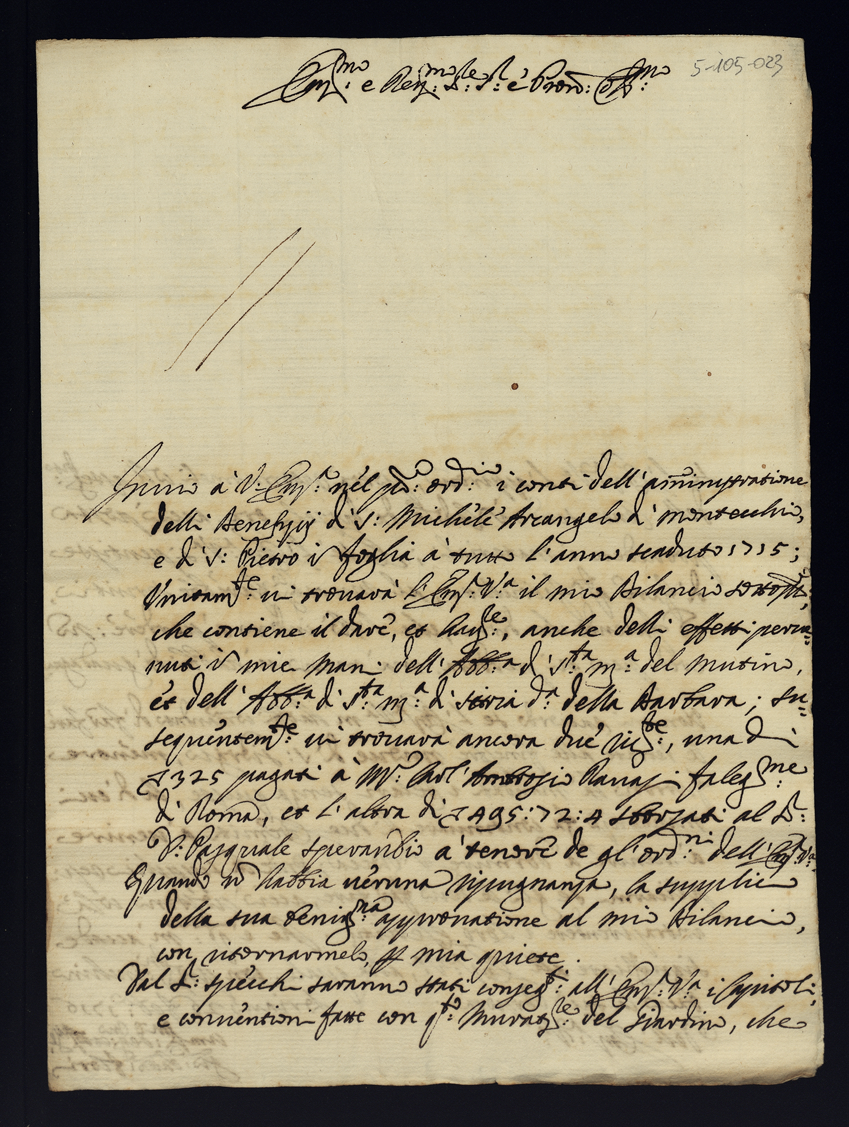 5-105-023
Em.mo e Rev.mo S.re S.r e Pron: Col.mo
Invio à V: Em.a nel p.o ord.io i conti dell'amministratione
delli Beneficij di S: Michele Arcangelo di Montecchio,
e di S: Pietro in foglia à tutto l'anno scaduto 1715;
Unitam.te vi trovarà l'Em: V.a il mio Bilancio
che contiene il dare, et havere, anche delli effetti perve=
nuti in mie Mani dell'Abb.a di S.ta M.a del Mutino,
et dell'Abb.a di S.ta M.a di d.a della Barbara; su=
sequentem.te vi trovarà ancora due una di
325 pagati à M.r Carl'Ambrosio falegname
di Roma, et l'altra di 495:72:4 sborsati al S.r
D: Pasquale Sperandio à tenore de gl'ord.ni dell'Em: V.a
Quando n habbia veruna ripugnanza, la supplico
della sua benig.ma approvatione al mio Bilancio,
con ritornarmelo, p mia quiete.
Dal S.r Specchi saranno stati conseg.ti all'Em: V.a i Capitoli,
e conventioni fatte con q.to Murat.re del Giardino, che